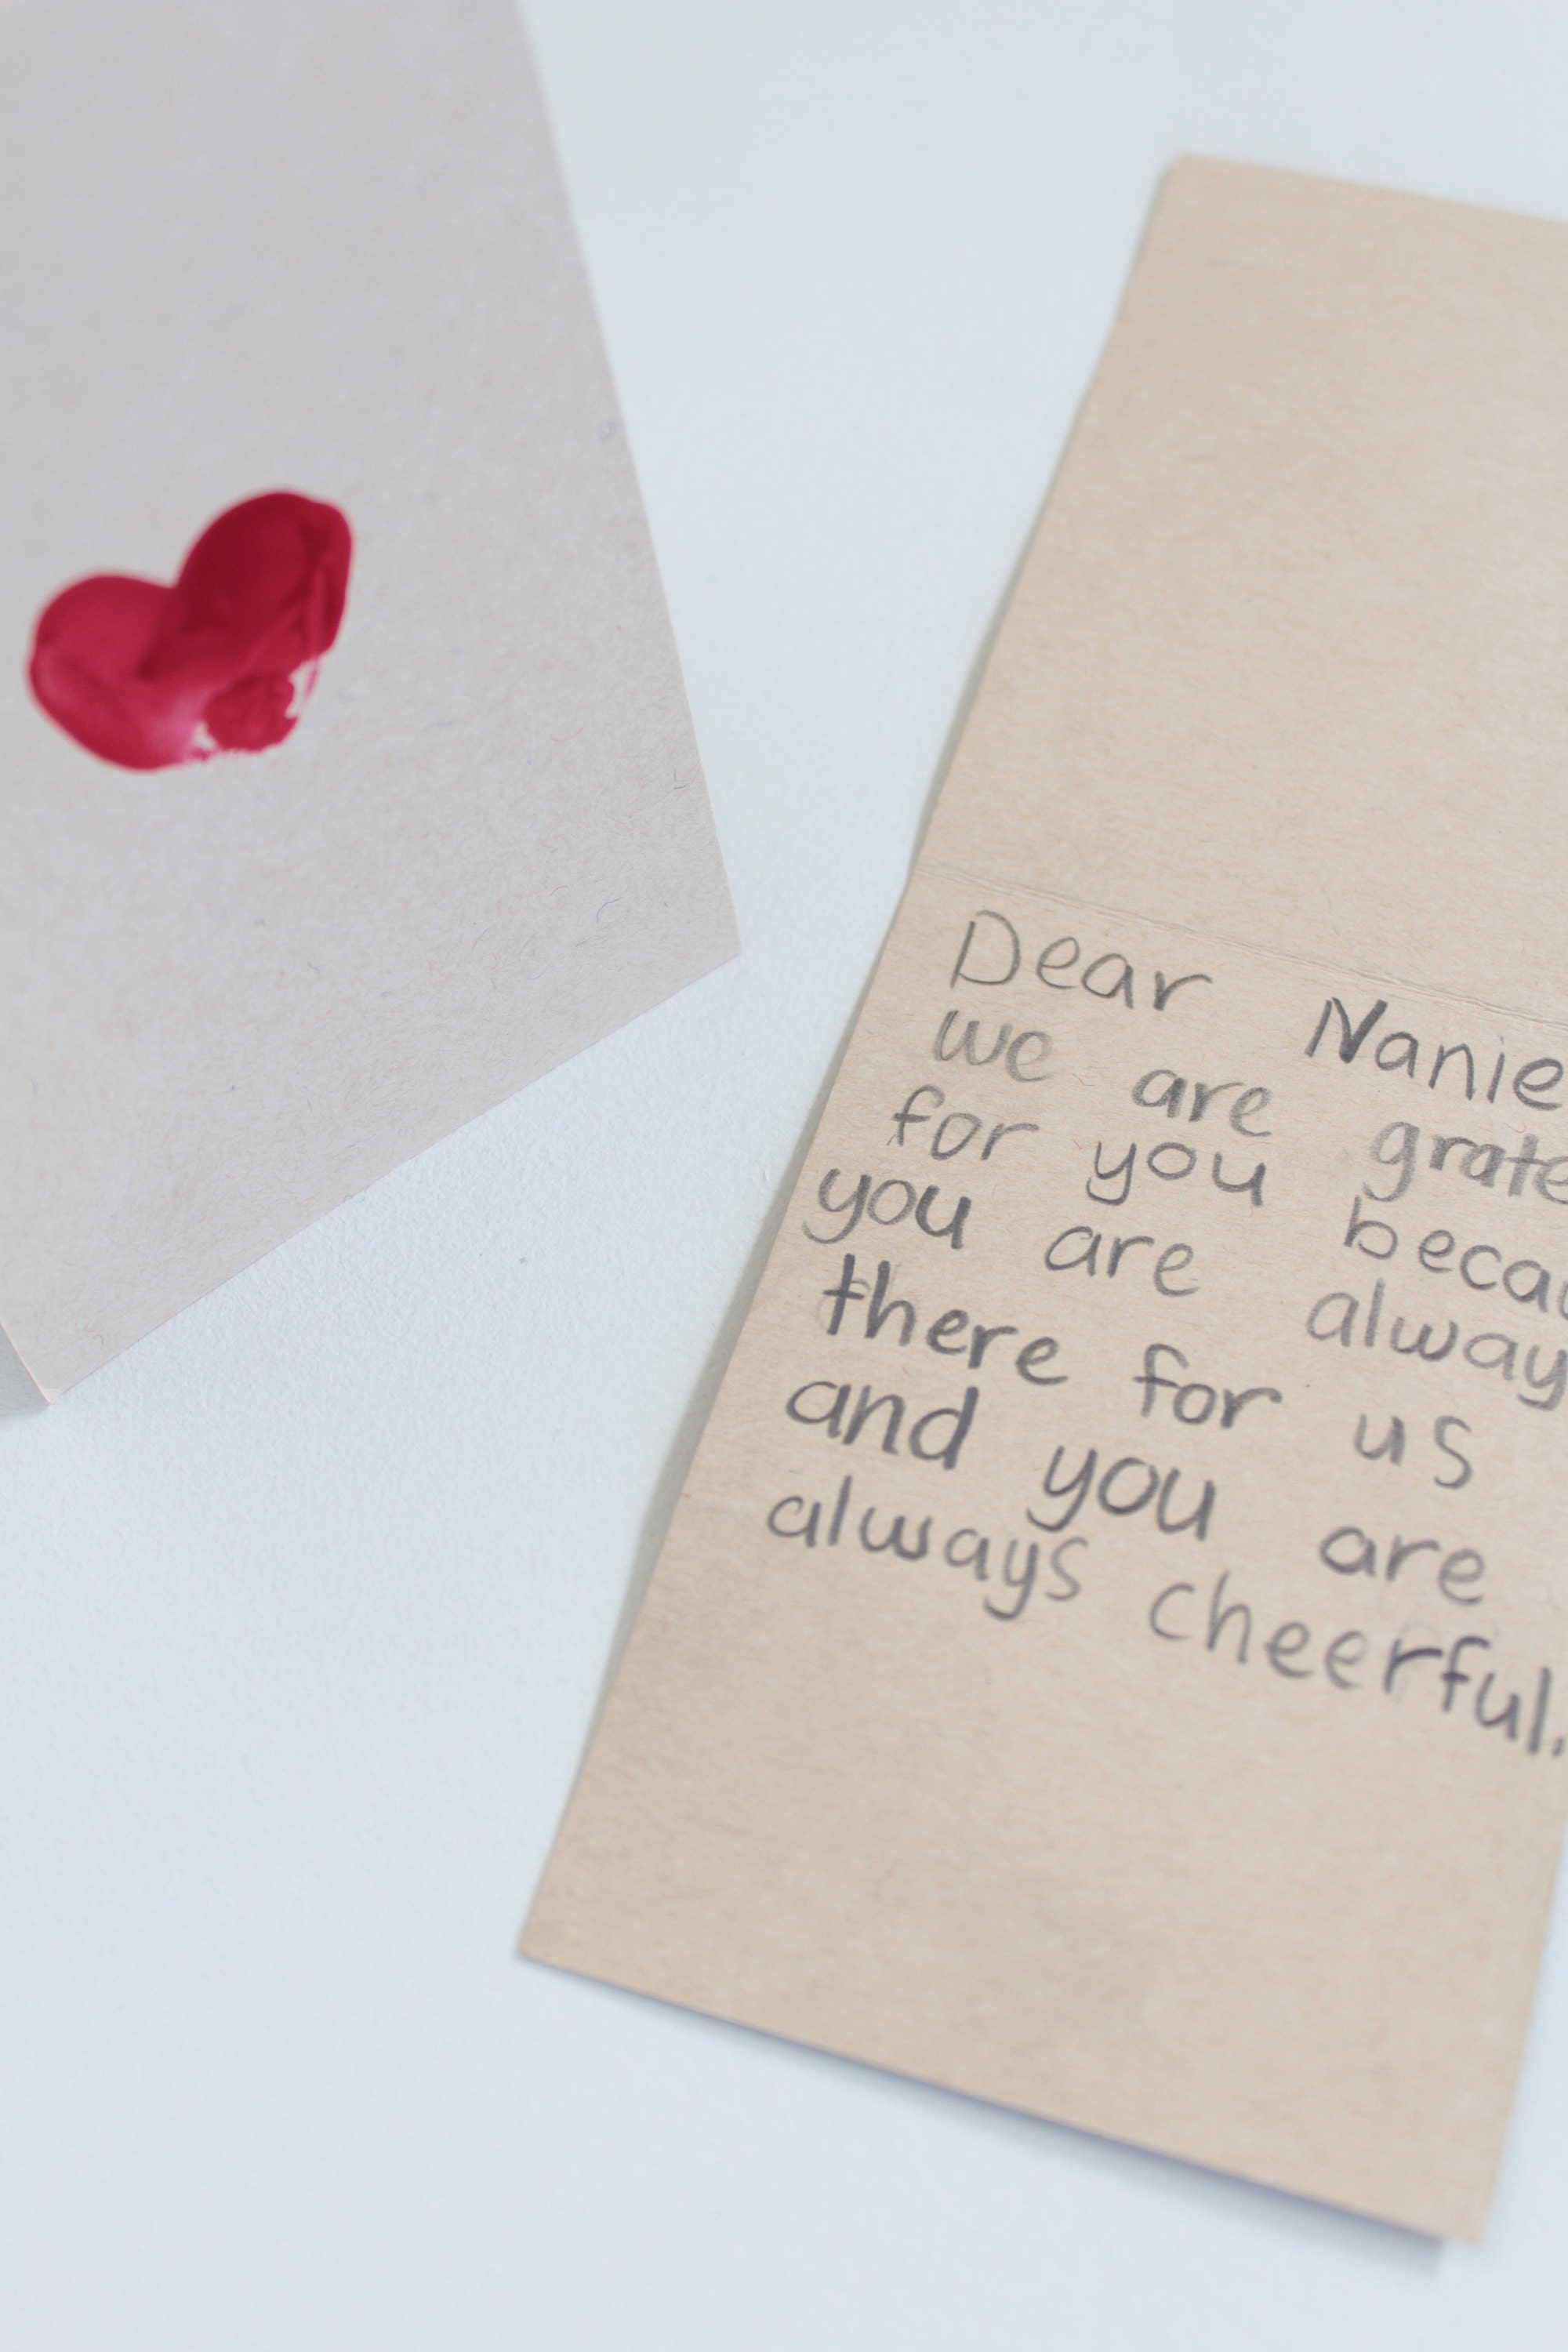 Dear Nanie
we are grate
for you becau
you are always
there for us
and you are
always cheerful.